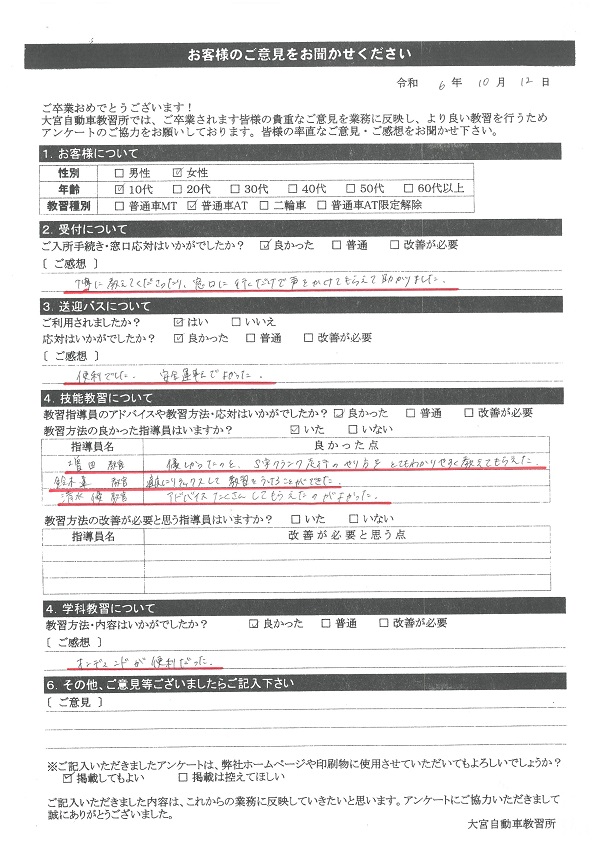 お客様のご意見をお聞かせください
令和 6 年 10 月 12 日
ご卒業おめでとうございます！
大宮自動車教習所では、ご卒業されます皆様の貴重なご意見を業務に反映し、より良い教習を行うため
アンケートのご協力をお願いしております。皆様の率直なご意見・ご感想をお聞かせ下さい。
1. お客様について
性別 □ 男性 ☑ 女性
年齢 ☑ 10代 □ 20代 □ 30代 □ 40代 □ 50代 □ 60代以上
教習種別 □ 普通車MT ☑ 普通車AT □ 二輪車 □ 普通車AT限定解除
2. 受付について
ご入所手続き・窓口応対はいかがでしたか？ ☑ 良かった □ 普通 □ 改善が必要
〔 ご感想 〕
丁寧に教えてくださったり、窓口に行くだけで声をかけてもらえて助かりました。
3. 送迎バスについて
ご利用されましたか？ ☑ はい □ いいえ
応対はいかがでしたか？ ☑ 良かった □ 普通 □ 改善が必要
〔 ご感想 〕
便利でした。 安全運転でよかった。
4. 技能教習について
教習指導員のアドバイスや教習方法・応対はいかがでしたか？ ☑ 良かった □ 普通 □ 改善が必要
教習方法の良かった指導員はいますか？ ☑ いた □ いない
指導員名 良かった点
増田 教官 優しかったのと、S字クランク走行のやり方をとてもわかりやすく教えてもらえた
鈴木 教官 にリラックスして教習をうけることができた。
清水 教官 アドバイスたくさんしてもらえたのがよかった。
教習方法の改善が必要と思う指導員はいますか？ □ いた □ いない
指導員名 改善が必要と思う点
4. 学科教習について
教習方法・内容はいかがでしたか？ ☑ 良かった □ 普通 □ 改善が必要
〔 ご感想 〕
オンディマンドが便利だった。
6. その他、ご意見等ございましたらご記入下さい
〔 ご意見 〕
※ご記入いただきましたアンケートは、弊社ホームページや印刷物に使用させていただいてもよろしいでしょうか？
☑ 掲載してもよい □ 掲載は控えてほしい
ご記入いただきました内容は、これからの業務に反映していきたいと思います。アンケートにご協力いただきまして
誠にありがとうございました。
大宮自動車教習所